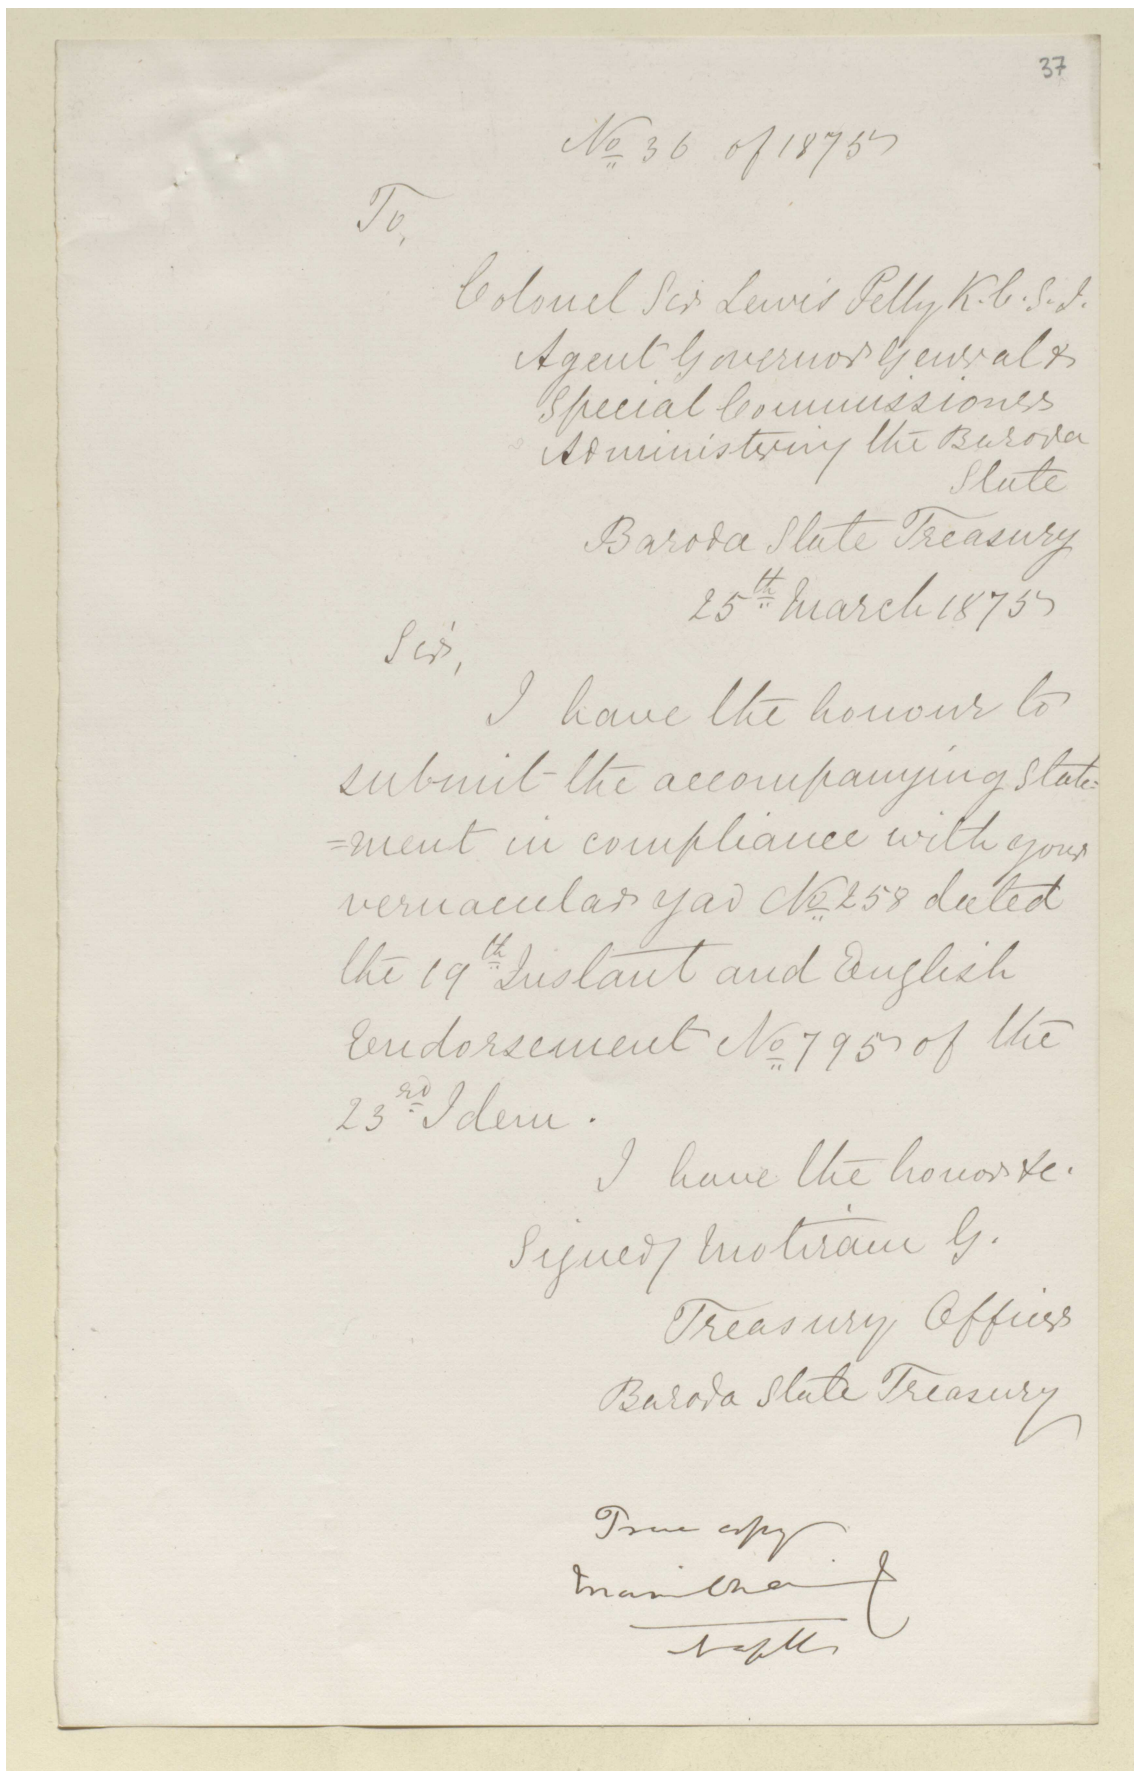 37
No 36 of 1875
To,
Colonel Sir Lewis Pelly K.C.S.I.
Agent Governor General &
Special Commissioner
Administering the Baroda
State
Baroda State Treasury
25th March 1875
Sir,
I have the honour to
submit the accompanying State=
=ment in compliance with your
vernacular yad No 258 dated
the 19th Instant and English
Endorsement No 795 of the
23rd Idem.
I have the honor &c.
Signed/ Motiram G.
Treasury Officer
Baroda State Treasury
True copy